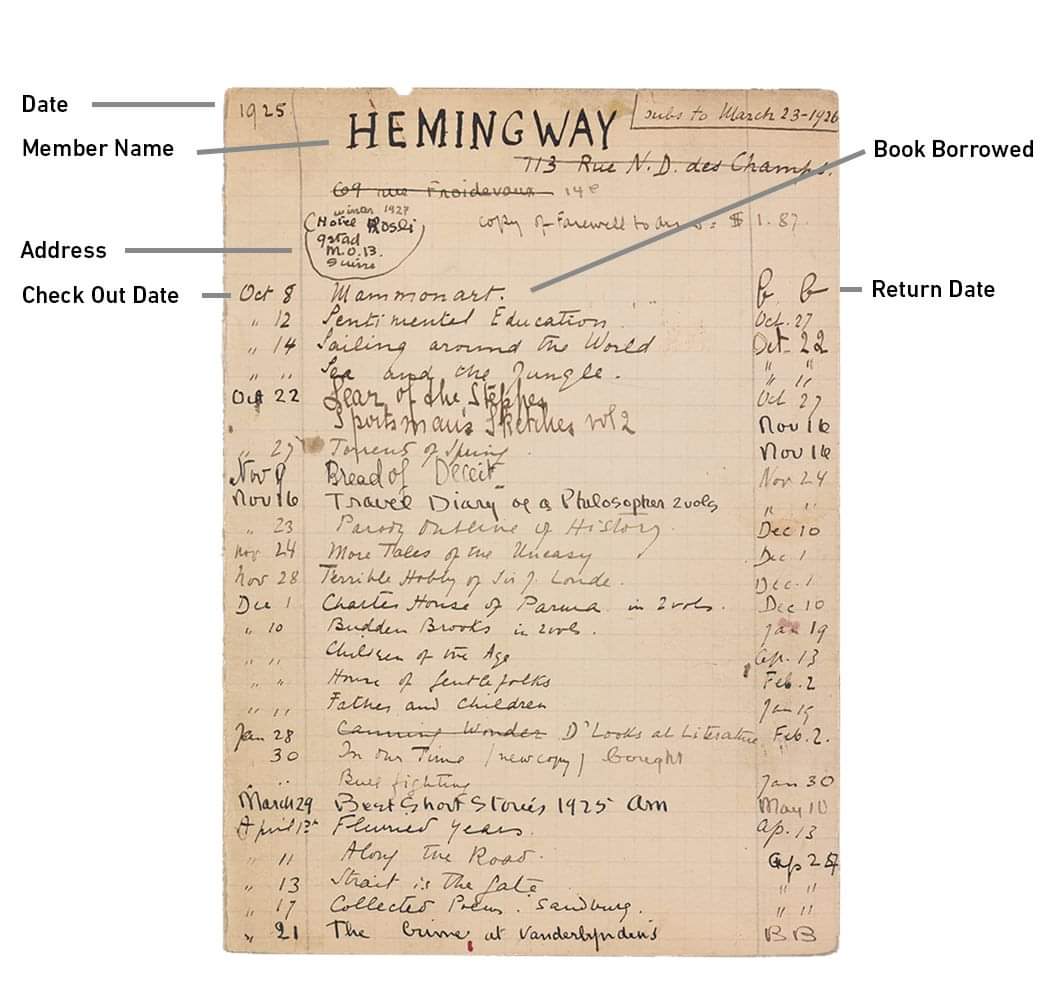 Date
1925
subs to March 23-1926
HEMINGWAY
Member Name
Book Borrowed
113 Rue N.D. des Champs.
69 rue Froidevaux 14e
winter 1927
Hotel Rosli
gstad
M.O.B.
Suisse
copy of Farewell to arms: $ 1.87.
Address
Check Out Date
Return Date
Oct 8 Mammonart.
" 12 Sentimental Education Oct. 27
" 14 Sailing around the World Oct. 22
" " Sea and the Jungle. " "
Oct 22 Lear of the Steppes Oct 27
Sportsman's Sketches vol 2 Nov 16
" 27 Torrents of Spring Nov 16
Nov Bread of Deceit Nov 24
Nov 16 Travel Diary of a Philosopher 2 vols " "
" 23 Parody Outline of History. Dec 10
Nov 24 More Tales of the Uneasy Dec. 1
Nov 28 Terrible Hobby of Sir J. Londe. Dec. 1
Dec 1 Charter House of Parma in 2 vols. Dec 10
" 10 Budden Brooks in 2 vols. Jan 19
" " Children of the Age Ap. 13
" " House of Gentlefolks Feb. 2
" " Fathers and Children Jan 19
Jan 28 Canning Wonder D' Looks at Literature Feb. 2.
30 In our Time (new copy) bought
" Bull fighting Jan 30
March 29 Best Short Stories 1925 Am May 10
April 13th Flurried Years. Ap. 13
" 11 Along the Road. Ap 25
" 13 Strait is the Gate " "
" 17 Collected Poems. Sandburg. " "
" 21 The Crime at Vanderlynden's BB